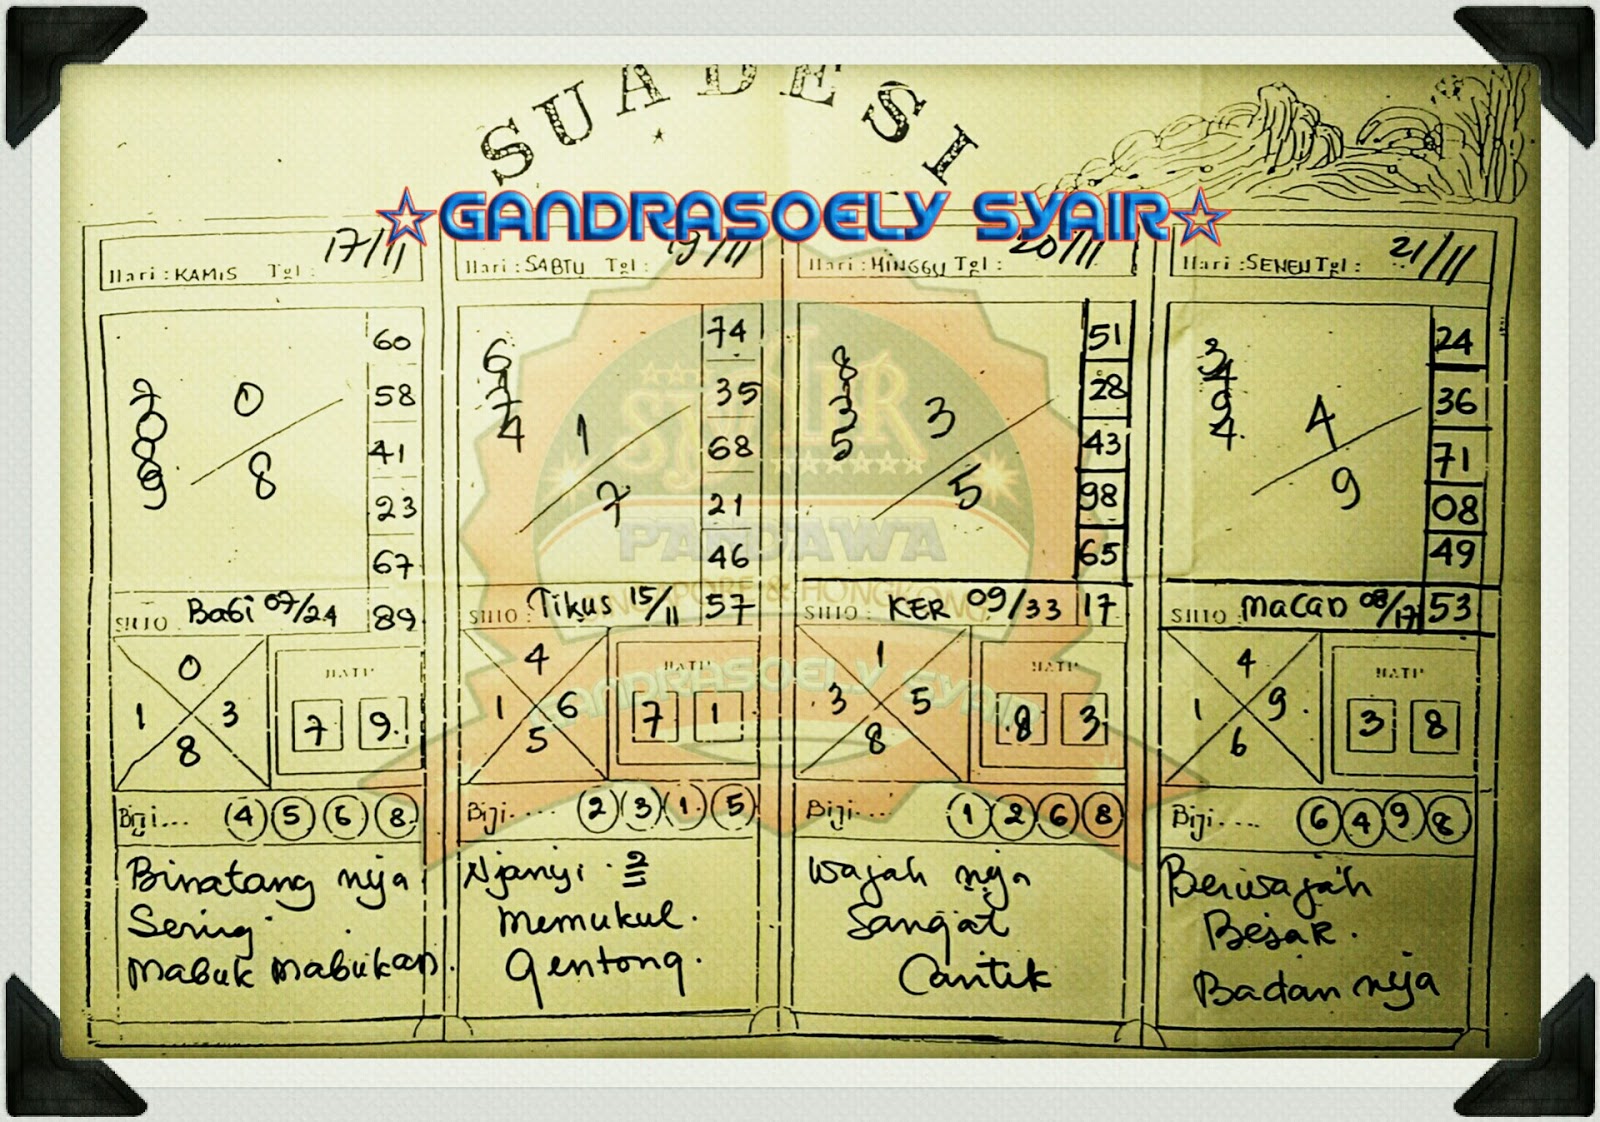 SUADESI
☆GANDRASOELY SYAIR☆
Hari : KAMIS Tgl : 17/11
60
58
41
23
67
89
7
0
8
9
0
8
SHIO : Babi 07/24
0
1 3
8
MATI
7 9
Biji... 4 5 6 8
Binatang nja
Sering
Mabuk Mabukan.
Hari : SABTU Tgl : 19/11
74
35
68
21
46
57
6
1
7
4
1
7
SHIO : Tikus 15/11
4
1 6
5
MATI
7 1
Biji.... 2 3 1 5
Njanyi . 2
Memukul.
Gentong.
Hari : MINGGU Tgl : 20/11
51
28
43
98
65
17
8
3
5
3
5
SHIO : KER 09/33
1
3 5
8
MATI
8 3
Biji.... 1 2 6 8
Wajah nja
Sangat
Cantik
Hari : SENEN Tgl : 21/11
24
36
71
08
49
53
3
4
9
4.
4
9
SHIO : Macan 08/17
4
1 9
6
MATI
3 8
Biji.... 6 4 9 8
Berwajah
Besar.
Badan nja
SYAIR
PANDAWA
SINGAPORE & HONGKONG
GANDRASOELY SYAIR